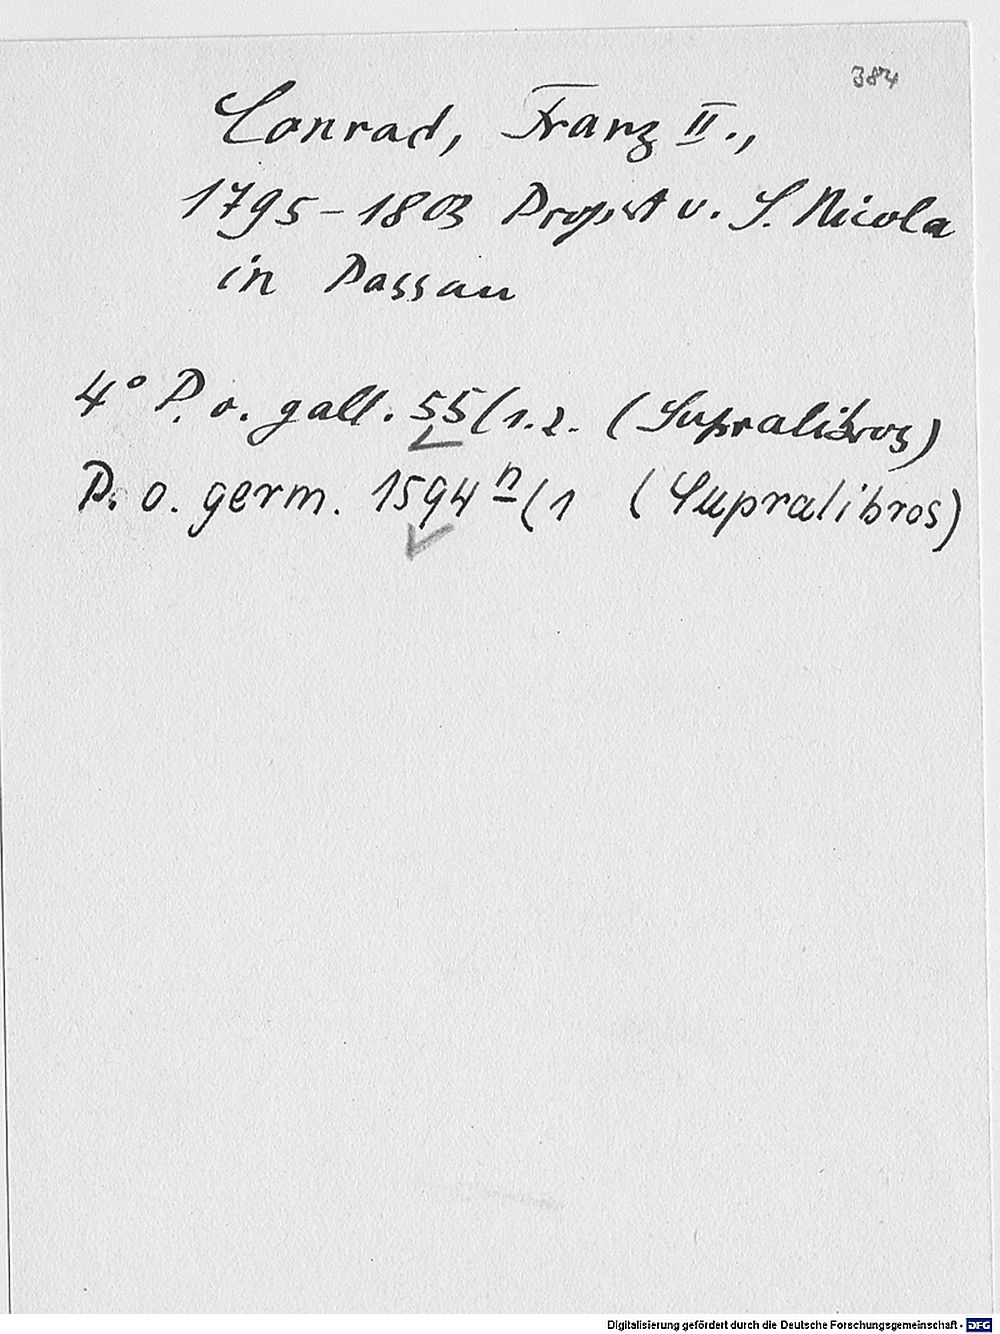 384
Conrad, Franz II.,
1795-1803 Propst v. S. Nicola
in Passau
4° P. o. gall. 55(1.2. (Supralibros)
P. o. germ. 1594 n(1 (Supralibros)
Digitalisierung gefördert durch die Deutsche Forschungsgemeinschaft - DFG